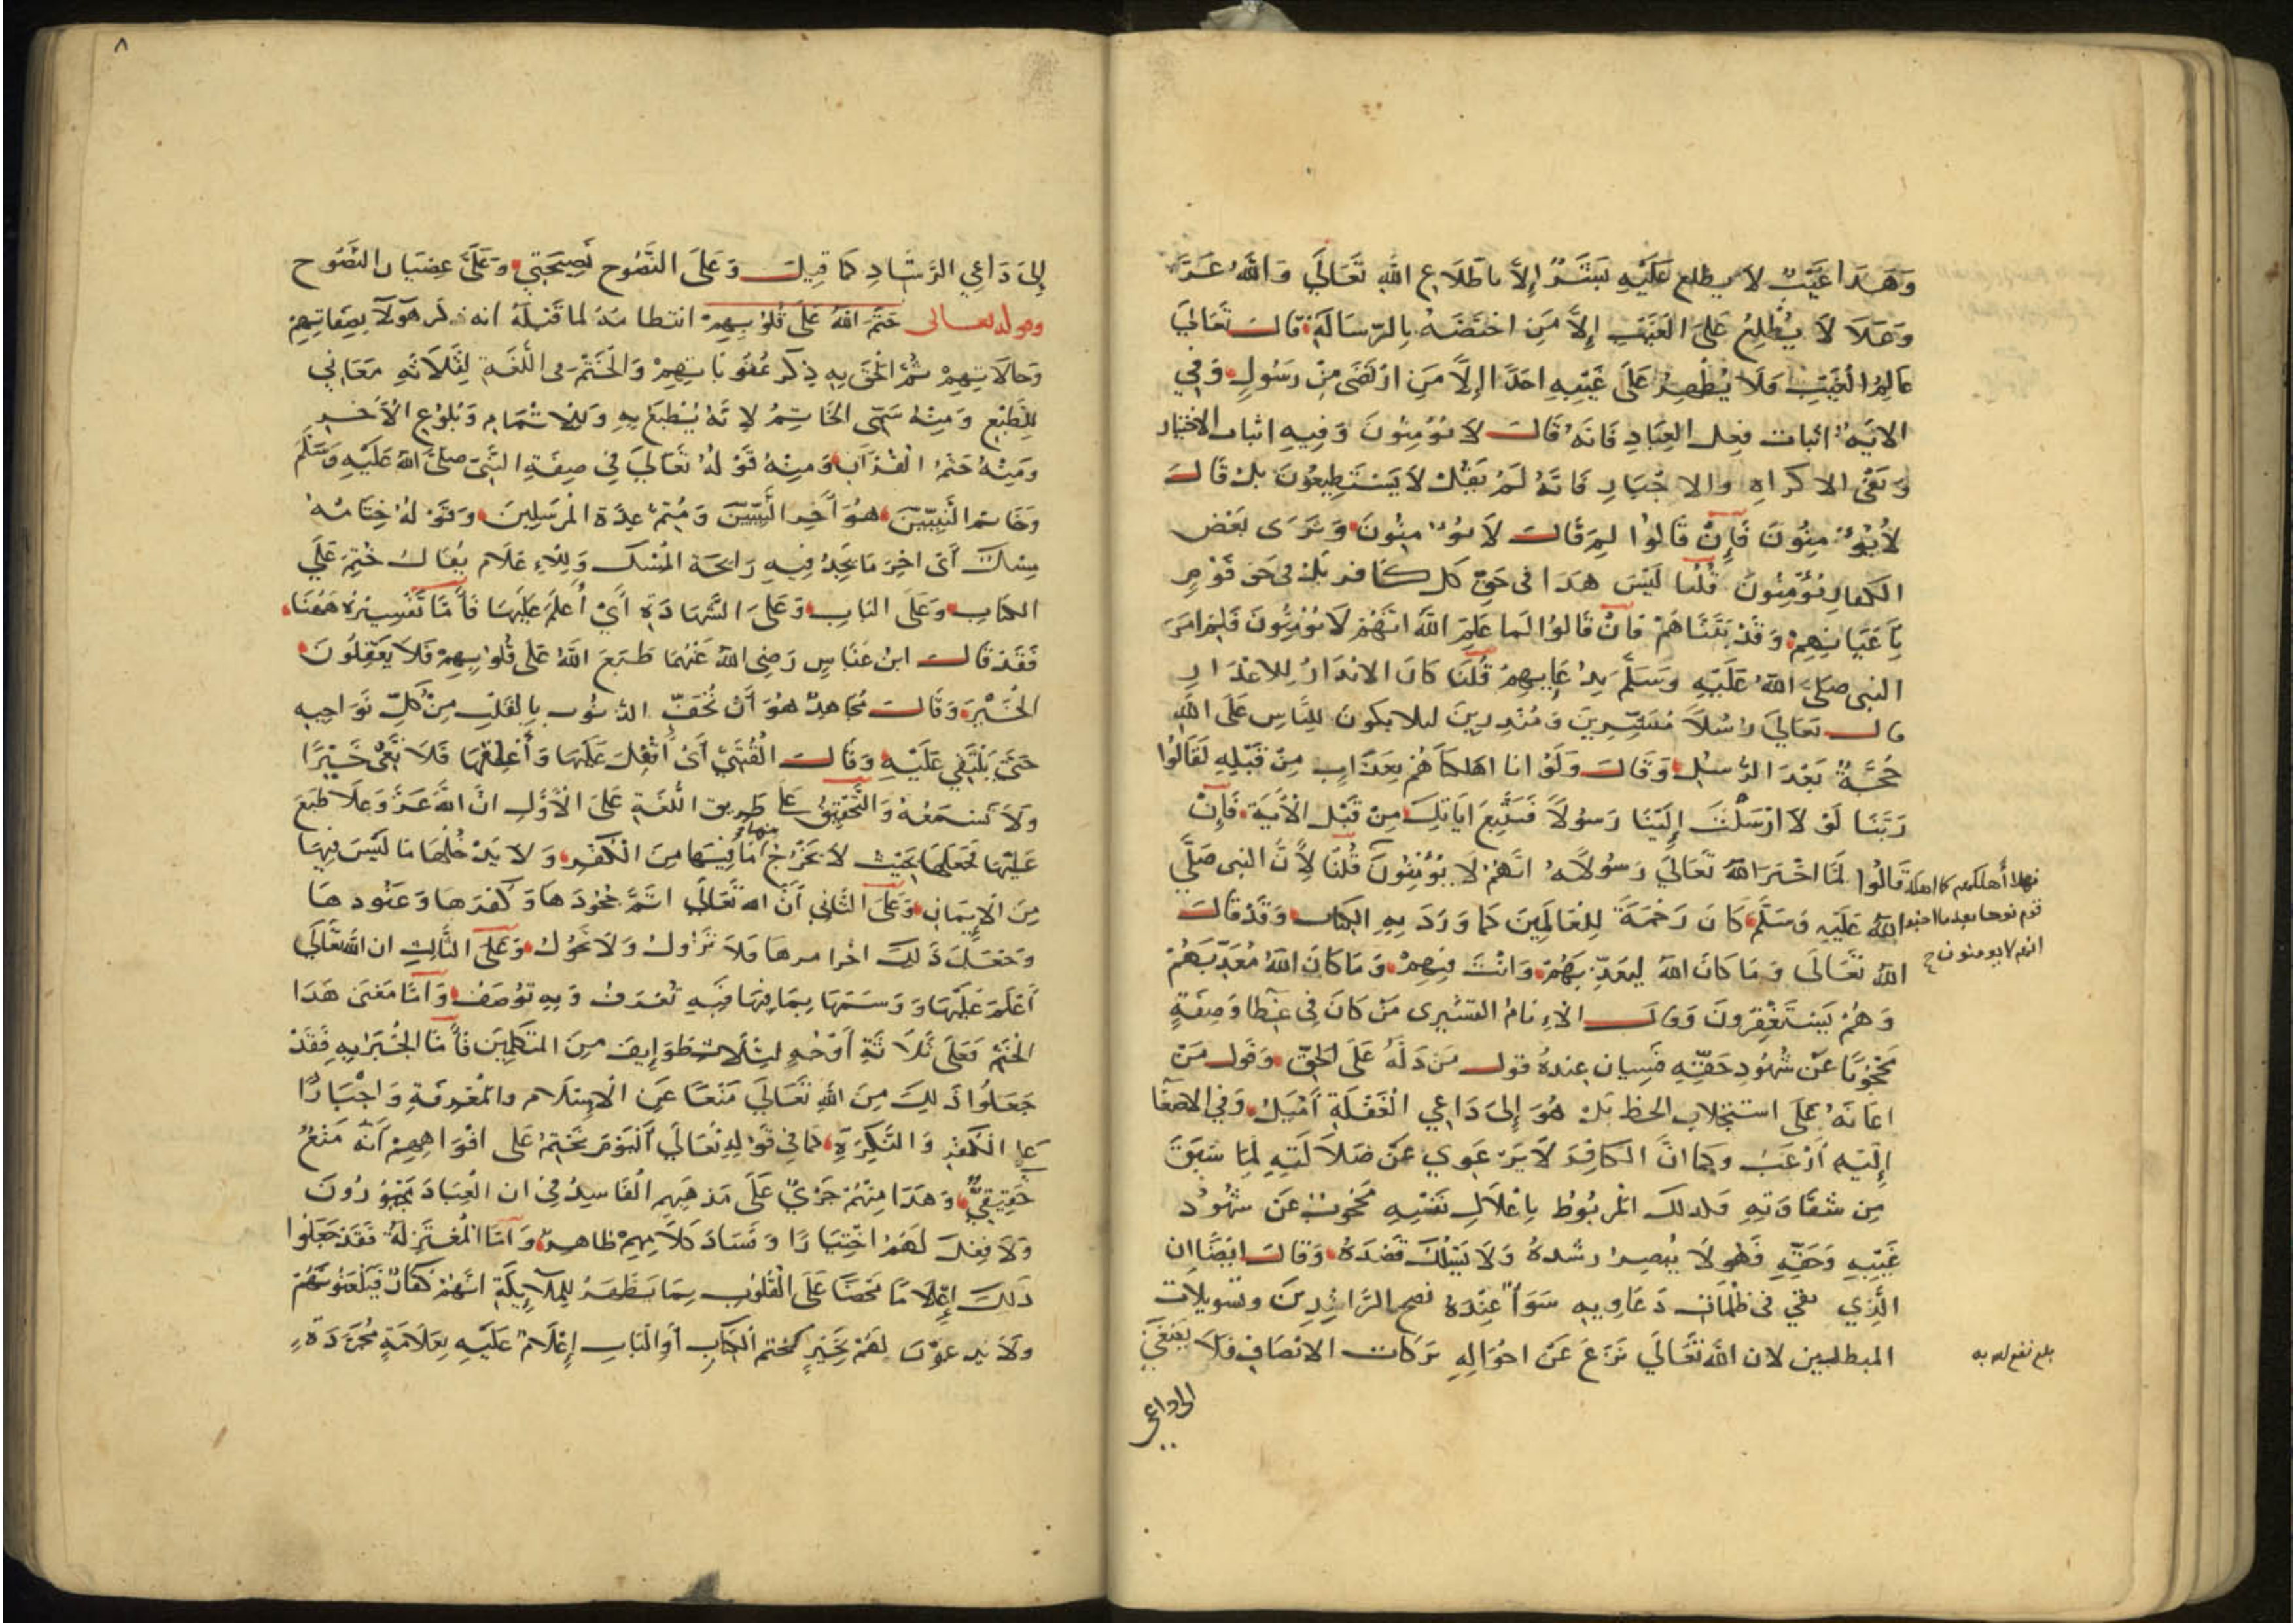 وَهَذَا غَيْبٌ لَا يطلع عَلَيْهِ بَشَرٌ إِلَّا باطْلَاعِ اللهِ تَعَالَى وَاللهُ عَزَّ
وَجَلَّ لَا يُطْلِعُ عَلَى الْغَيْبِ إِلَّا مَنِ اخْتَصَّهُ بِالرِّسَالَةِ قَالَ تَعَالَى
عَالِمُ الْغَيْبِ فَلَا يُظْهِرُ عَلَى غَيْبِهِ احَدًا اِلَّا مَنِ ارْتَضَى مِنْ رَسُولٍ وَفِي
الايَةِ اثبات فِعل العِبَادِ فَانَّهُ قَالَ لَا يُؤْمِنُونَ وَفِيهِ اثبات الاختيار
وَنَفْي الاكرَاهِ والاجْبَارِ فَانَّهُ لَمْ يَقُلْ لَا يَسْتَطِيعُونَ بل قَالَ
لَا يُؤْمِنُونَ فَإِنْ قَالُوا لِمَ قَالَ لَا يُؤْمِنُونَ وَنَرَى بَعْض
الكفار يُؤْمِنُونَ قُلْنا لَيْسَ هَذَا فى حَقِّ كل كافر بَلْ فى حَق قَوْمٍ
بِأَعْيَانِهِمْ وَقَدْ بَيَّنَّاهُمْ فَانْ قَالُوا لَما عَلِمَ اللَّهُ انَّهُمْ لَا يُؤْمِنُونَ فَلِمَ امَرَ
النبى صَلَى اللهُ عَلَيْهِ وَسَلَّمَ بِدُعَايِهِمْ قُلْنَا كَانَ الانذَارُ لِلاعْذَارِ
قال تعَالَى رُسُلًا مُبَشِّرِينَ وَمُنْذِرِينَ ليلا يكون لِلنَّاسِ عَلَى اللهِ
حُجَّةٌ بَعْدَ الرُّسُلِ وَقَالَ وَلَوْ انا اهلكناهُمْ بِعَذَابٍ مِنْ قَبْلِهِ لَقَالُوا
رَبَّنَا لَوْ لَا ارْسَلْتَ إِلَيْنَا رَسُولًا فَنَتَّبِعَ ايَاتِكَ مِنْ قَبْلِ الْآيَةَ فَإِنْ
قَالُوا لَمَّا اخْبَرَ اللهُ تَعَالَى رَسُولَهُ انَّهُمْ لَا يُؤْمِنُونَ
فهلا أهلكهم كما اهلك
قوم نوح بعدما اخبر
انهم لا يومنون
قُلْنَا لِأَنَّ النبى صَلَّى
اللهُ عَلَيْهِ وَسَلَّمَ كَانَ رَحْمَةً لِلْعَالَمِينَ كَمَا وَرَدَ بِهِ الْكِتَابُ وَقَدْ قَالَ
اللهُ تَعَالَى وَمَا كَانَ اللهُ لِيُعَذِّبَهُمْ وَانْتَ فِيهِمْ وَمَا كَانَ اللهُ مُعَذِّبَهُمْ
وَهُمْ يَسْتَغْفِرُونَ وَقَالَ الْاِمَامُ القشيرى مَنْ كَانَ فِي غِطَا وَصفَةٍ
مَحْجُوبًا عَنْ شُهُودِ حَقِّهِ فَسِيان عِندَهُ قول مَنْ دَلَّهُ عَلَى الحَقِّ وَقَول مَنْ
اعَانَهُ عَلَى استجلاب الحظ بَلْ هُوَ إِلَى دَاعِي الْغَفْلَةِ أَمْيَلُ وَفِي الاصغا
إِلَيْهِ أَرْغَبُ وَكَمَا انَّ الكَافِرَ لَا يَرْعَوِي عَنْ ضَلَالَتِهِ لِمَا سَبَقَ
مِن شقَاوَتِهِ فَلذلك المَرْبُوطُ بِاغْلَالِ نَفْسِهِ مَحْجُوبٌ عَنْ شُهُودِ
غَيْبِهِ وَحَقِّهِ فَهُو لَا يُبْصِرُ رشْدَهُ وَلَا يَسْلُكُ قَصْدَهُ وَقَالَ ايْضًا اِن
الَّذِي بقى فى ظلُمَاتِ دَعَاوِيهِ سَوَآءٌ عِنْدَهُ نصح الرَّاشِدِينَ وَتسويلَات
المبطلين لان اللهَ تَعَالَى نَزَعَ عَنْ احْوَالِهِ بَرَكَات الانْصَافِ فَلَا يصْغَى
بلغ نفع الله به
الى داعى
٨
إِلَى دَاعِي الرَّشَادِ كَمَا قِيلَ وَعَلَى النَّصُوح نَصِيحَتِي وَعَلَيَّ عِصْيَان النَّصُوح
وقوله تعالى خَتَمَ اللهُ عَلَى قُلُوْبِهِمْ انتظامُهُ لما قَبْلَهُ انه ذكر هَوُلَآ بِصِفَاتِهِمْ
وَحالَاتِهِمْ ثُمَّ الْحَقَ بِهِ ذِكْر عُقُوبَاتِهِمْ وَالْخَتْمُ فى اللُّغَةِ لِثَلَاثَةِ مَعَانِي
لِلطَّبْعِ وَمِنْهُ سُمِّيَ الخَاتِمُ لِاَنَّهُ يُطْبَعُ بِهِ وَلِلْاِتْمَامِ وَبُلُوْغِ الْآخِرِ
وَمِنْهُ خَتْمُ الْقُرْآنِ وَمِنْهُ قَوْلُهُ تَعَالَى فِي صِفَةِ النَّبِيِّ صَلَّى اللهُ عَلَيْهِ وَسَلَّمَ
وَخَاتم النَّبِيِّينَ هُوَ آخِر النَّبِيِّينَ وَمُتِمُّ عِدَّةِ الْمُرْسَلِينَ وَقَوْلُهُ خِتَامُهُ
مِسْك أَىْ اخِرَ مَا يَجِدُ فِيهِ رَايِحَة الْمِسْك وَلِلاِعْلَام يُقَال خُتِمَ عَلَى
الكِتَابِ وَعَلَى البَابِ وَعَلَى الشَّهَادَةِ أَيْ أُعلمَ عَلَيْهَا فَأَمَّا تَفْسِيْرُهُ هَهُنَا
فَقَدْ قَالَ ابنُ عَبَّاسٍ رَضِى اللهُ عَنْهُمَا طَبَعَ اللهُ عَلَى قُلُوْبِهِمْ فَلَا يَعْقِلُونَ
الْخَيْرَ وَقَالَ مُجَاهِدٌ هُوَ أَنْ تَحُفَّ الذُّنُوب بِالْقَلْبِ مِنْ كُلِّ نَوَاحِيهِ
حَتَّى يَلْتَقِي عَلَيْهِ وَقَالَ الْقُتَبِيُّ أَىْ اقْفَلَ عَلَيْهَا وَأَغْلَقَهَا فَلَا تَعِي خَيْرًا
وَلَا تَسْمَعُهُ وَالتَّحْقِيْقُ عَلَى طَرِيق اللُّغَةِ عَلَى الْأَوَّلِ انَّ اللهَ عَزَّ وَعَلَا طَبَعَ
عَلَيْهَا فَجَعَلَهَا بِحَيْثُ لَا يَخْرُجُ مِنهَا مَا فِيهَا مِنَ الْكُفْرِ وَلَا يَدْخُلُهَا مَا لَيْسَ فِيهَا
مِنَ الْإِيمَانِ وَعَلَى الثَّانِي أَنَّ الله تَعَالَى اَتَمَّ جُحُودَهَا وَكُفرَهَا وَعَنُودهَا
وَجَعَلَ ذَلِكَ اخر امرها فَلَا تَزُولُ وَلَا تَحُوْلُ وَعَلَى الثَّالِثِ ان اللهَ تَعَالَى
أَعْلَمَ عَلَيْهَا وَوَسَمَهَا بِمَا فِيهَا فَبِهِ تُعْرَفُ وَبِهِ تُوْصَفُ وَأمَّا مَعْنَى هَذَا
الْخَتْمِ فَعَلَى ثَلَاثَةِ أَوْجُهٍ لِثَلَاث طَوَايِفَ مِنَ المتَكَلِّمِينَ فَأَمَّا الْجَبْرِيه فَقَدْ
جَعَلُوا ذَلِكَ مِنَ اللهِ تَعَالَى مَنْعًا عَنِ الْاِسْلَامِ وَالْمَعْرِفَةِ وَاجْبَارًا
عَلَى الْكُفْرِ وَالنَّكِرَةِ كَمَا فِي قَوْلِهِ تَعَالَى اَلْيَوْمَ نَخْتِمُ عَلَى افْوَاهِهِمْ أَنَّهُ مَنْعٌ
حَقِيْقِيٌّ وَهَذَا مِنْهُمْ جَرْيٌ عَلَى مَذْهَبِهِم الْفَاسِدِ فِي ان الْعِبَادَ مَجْبُوْرُونَ
وَلَا فِعْلَ لَهُمْ اخْتِيَارًا وَفَسَادُ كَلَامِهِمْ ظاهِرٌ وَأمَّا الْمُعْتَزِلَةُ فَقَدْ جَعَلُوا
ذَلِكَ إِعْلَامًا مَحْضًا عَلَى الْقُلُوبِ بِمَا يَظْهَرُ لِلْمَلَآيِكَةِ انَّهُمْ كُفَّارٌ فَيَلْعَنُونَهُمْ
وَلَا يَدعوْنَ لَهُمْ بِخَيْرٍ كَختم الْكِتَابِ أَوِ الْبَابِ إِعْلَامٌ عَلَيْهِ بِعَلَامَةٍ مُجَرَّدَةٍ